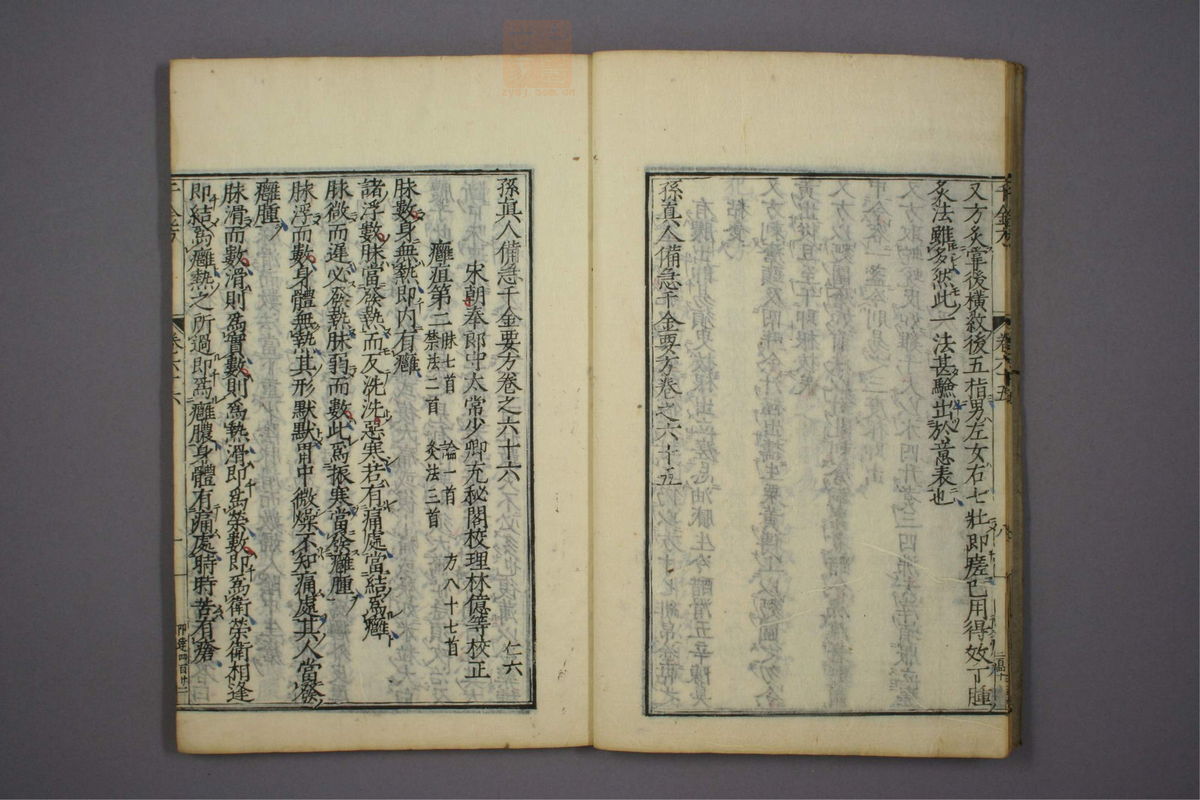 又方灸掌後橫紋後五指男左女右七壯即瘥已用得效丁腫
灸法雖多然此一法甚驗出於意表也
孫真人備急千金要方卷之六十五
孫真人備急千金要方卷之六十六
仁六
宋朝奉郎守太常少卿充秘閣校理林億等校正
癰疽第二
脉七首 論一首 方八十七首
禁法二首 灸法三首
脉數身無熱即内有癰
諸浮數脉當發熱而反洗洗惡寒若有痛處當結爲癰
脉微而遲必發熱脉弱而數此爲振寒當發癰腫
脉浮而數身體無熱其形默默胃中微燥不知痛處其人當發
癰腫
脉滑而數滑則爲實數則爲熱滑即爲榮數即爲衛榮衛相逢
即結爲癰熱之所過即爲癰膿身體有痛處時時苦有瘡
千金方
卷六十六
一